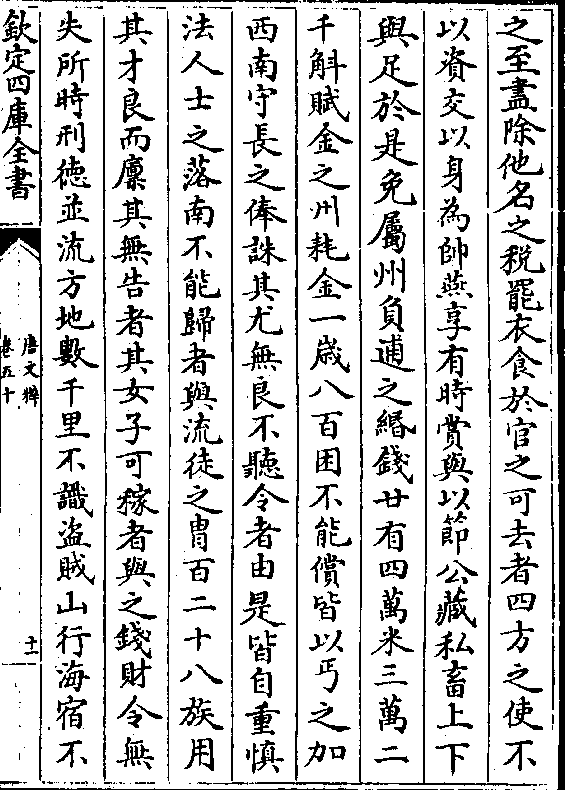 之至盡除他名之税罷衣食於官之可去者四方之使不
以資交以身為帥燕享有時賞與以節公藏私畜上下
與足於是免屬州負逋之緡錢廿有四萬米三萬二
千斛賦金之州耗金一歳八百困不能償皆以丐之加
西南守長之俸誅其尤無良不聽令者由是皆自重慎
法人士之落南不能歸者與流徙之胄百二十八族用
其才良而廩其無告者其女子可稼者與之錢財令無
失所時刑徳並流方地數千里不識盜賊山行海宿不
欽定四庫全書
唐文粹
卷五十
十一